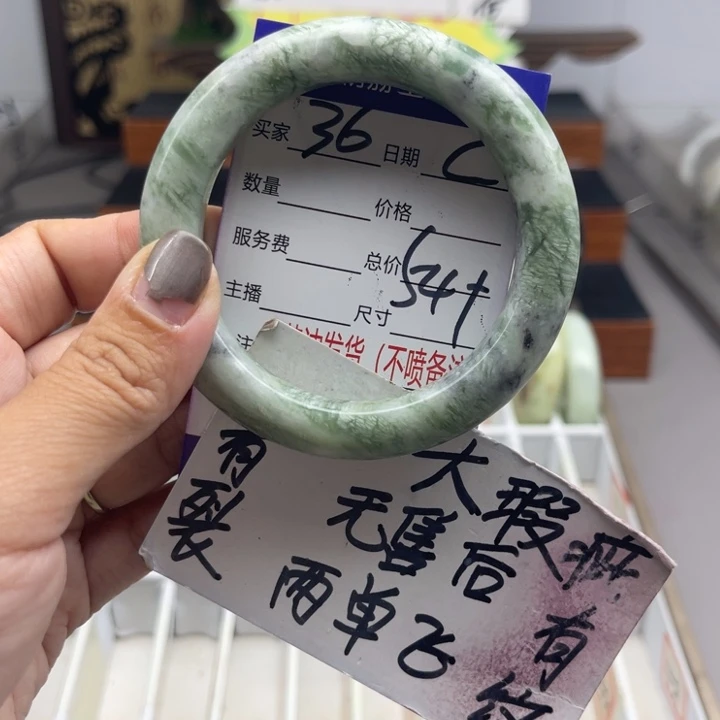 买家 36 日期 C
数量 价格
服务费 总价 54+
主播 尺寸
注
发货（不喷备注
有裂
大瑕疵
无售后 有纹
两单飞